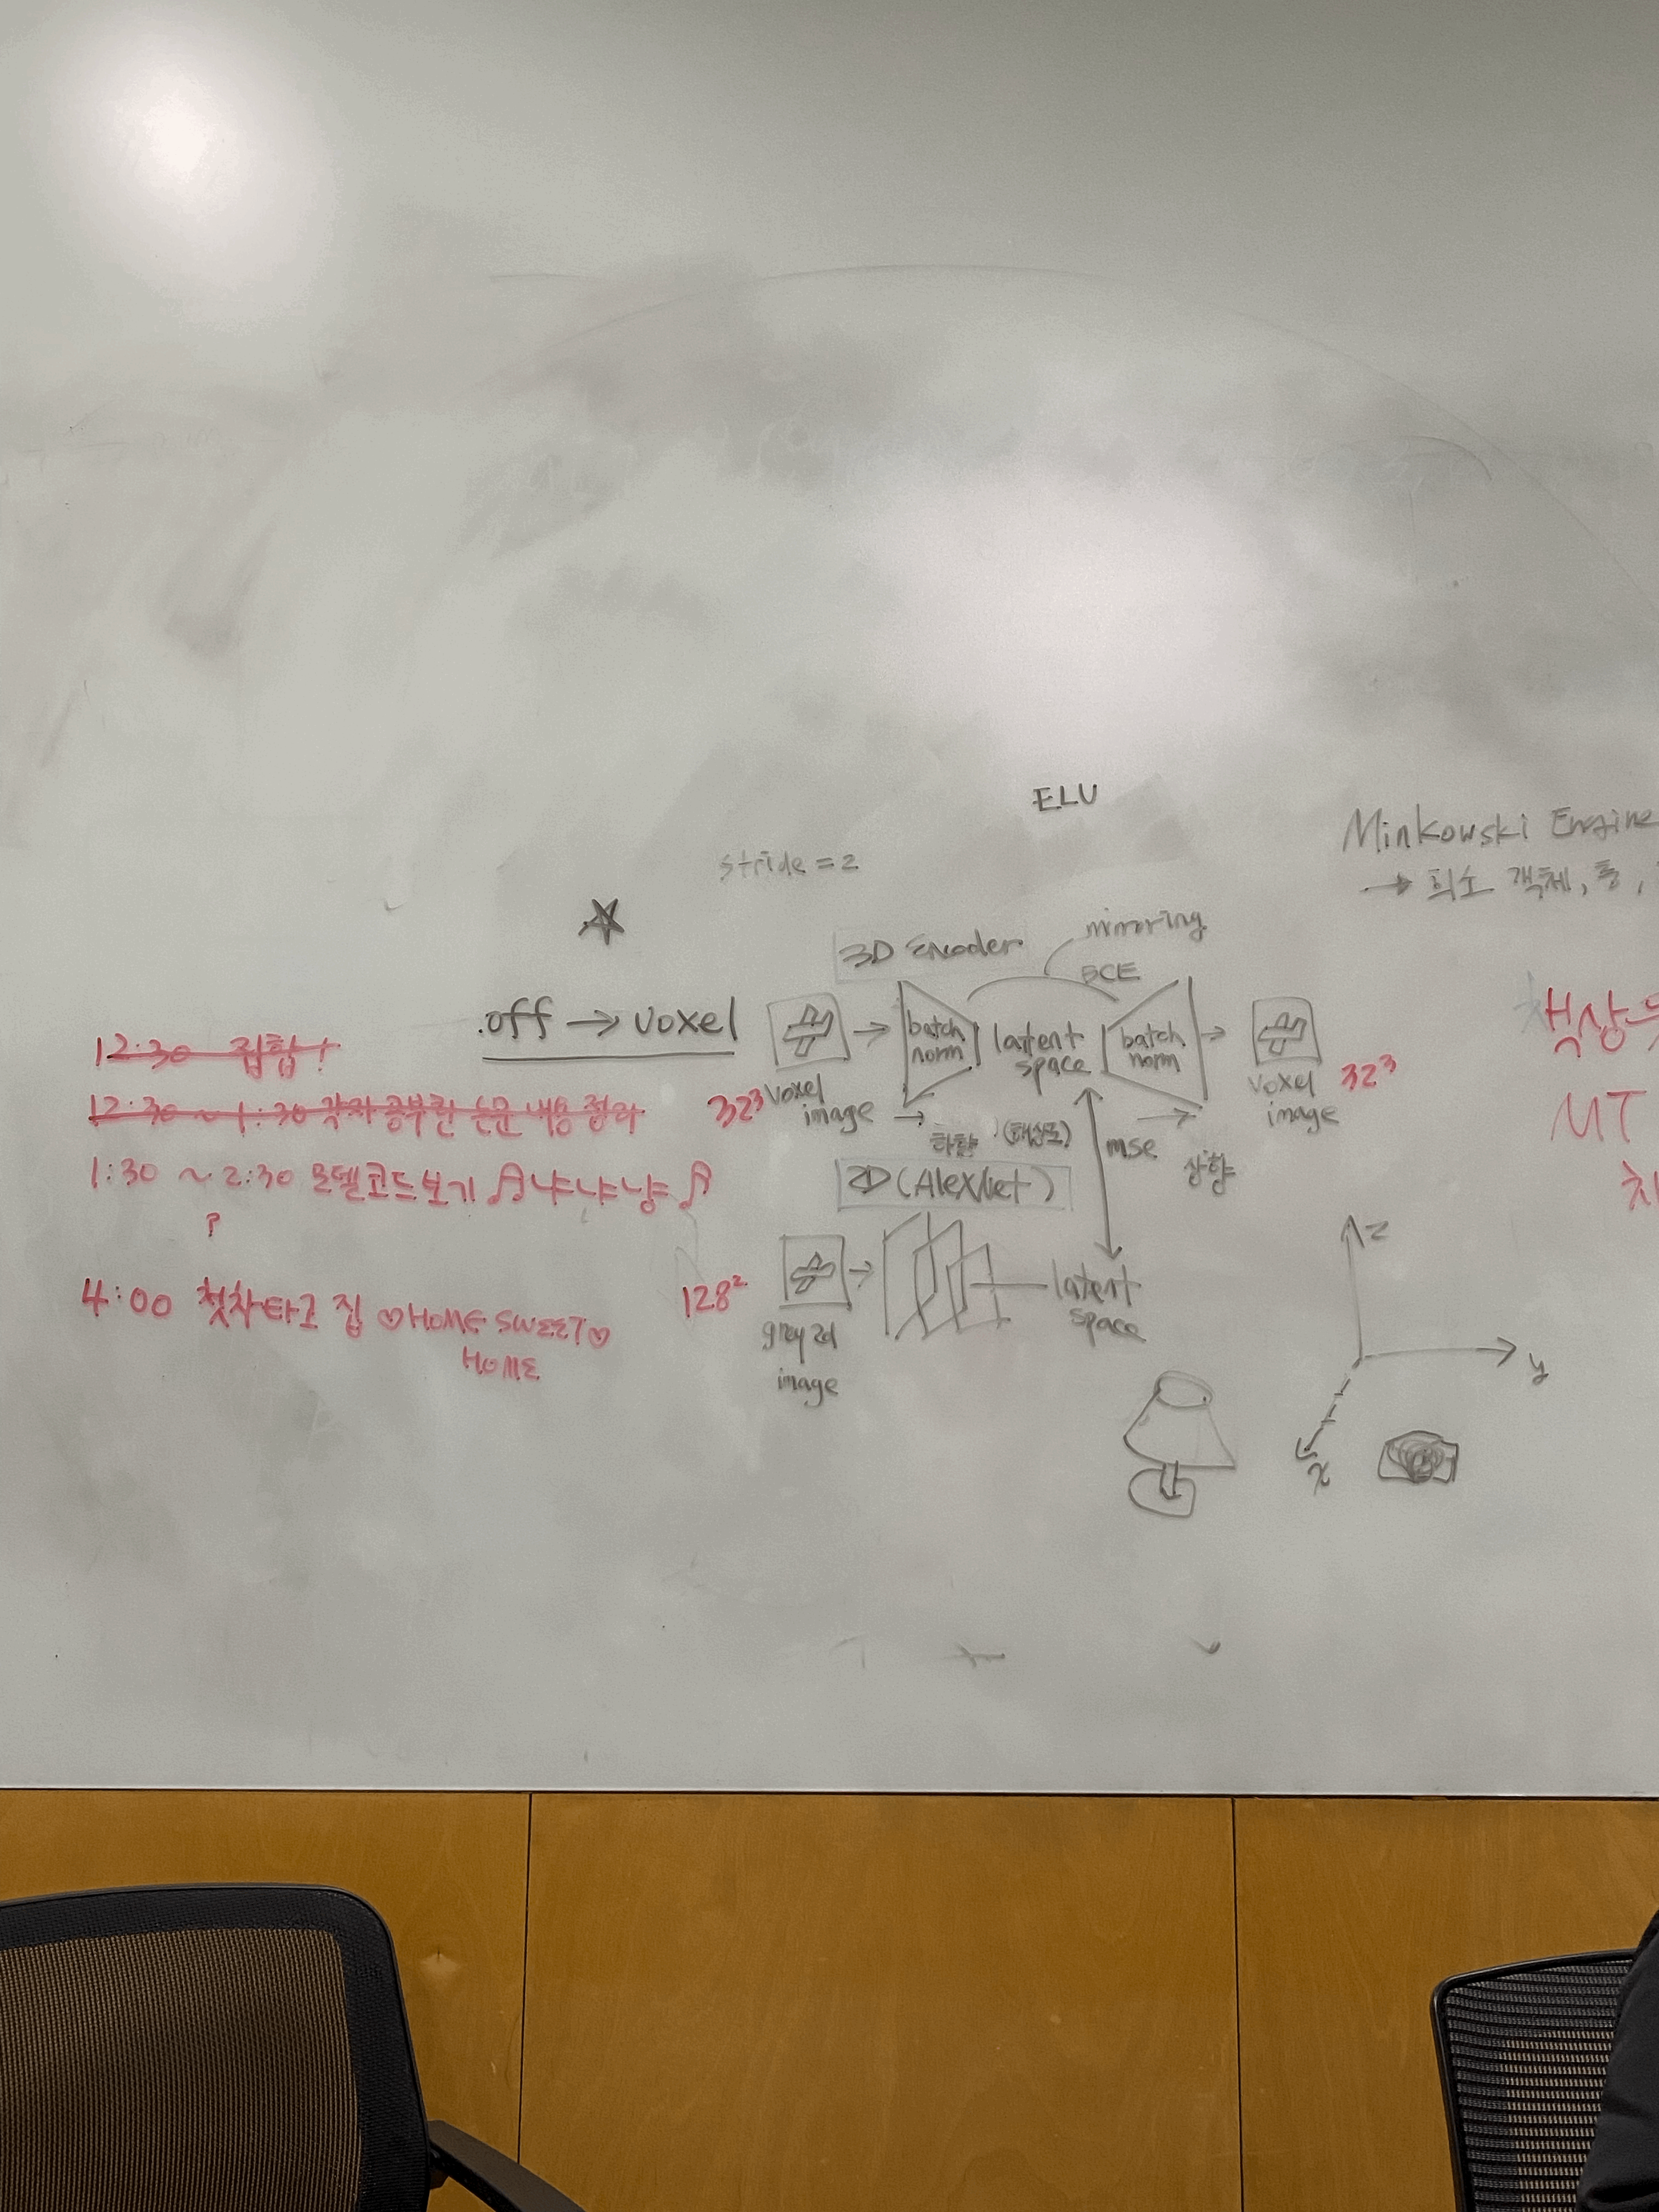 ELU
stride = 2
Minkowski Engine
→ 희소 객체,
3D Encoder
mirroring
BCE
.off → voxel
batch norm
latent space
batch norm
voxel image
32³
voxel image
32³
하향 (해상도)
mse
상향
2D (AlexNet)
128²
grey 2d image
latent space
z
y
x
12:30 집합!
12:30 ~ 1:30 각자 공부한 논문 내용 정리
1:30 ~ 2:30 모델코드보기 ♫ 냐냐냥 ♫
?
4:00 첫차타고 집 ♡HOME SWEET♡
HOME
책상
MT